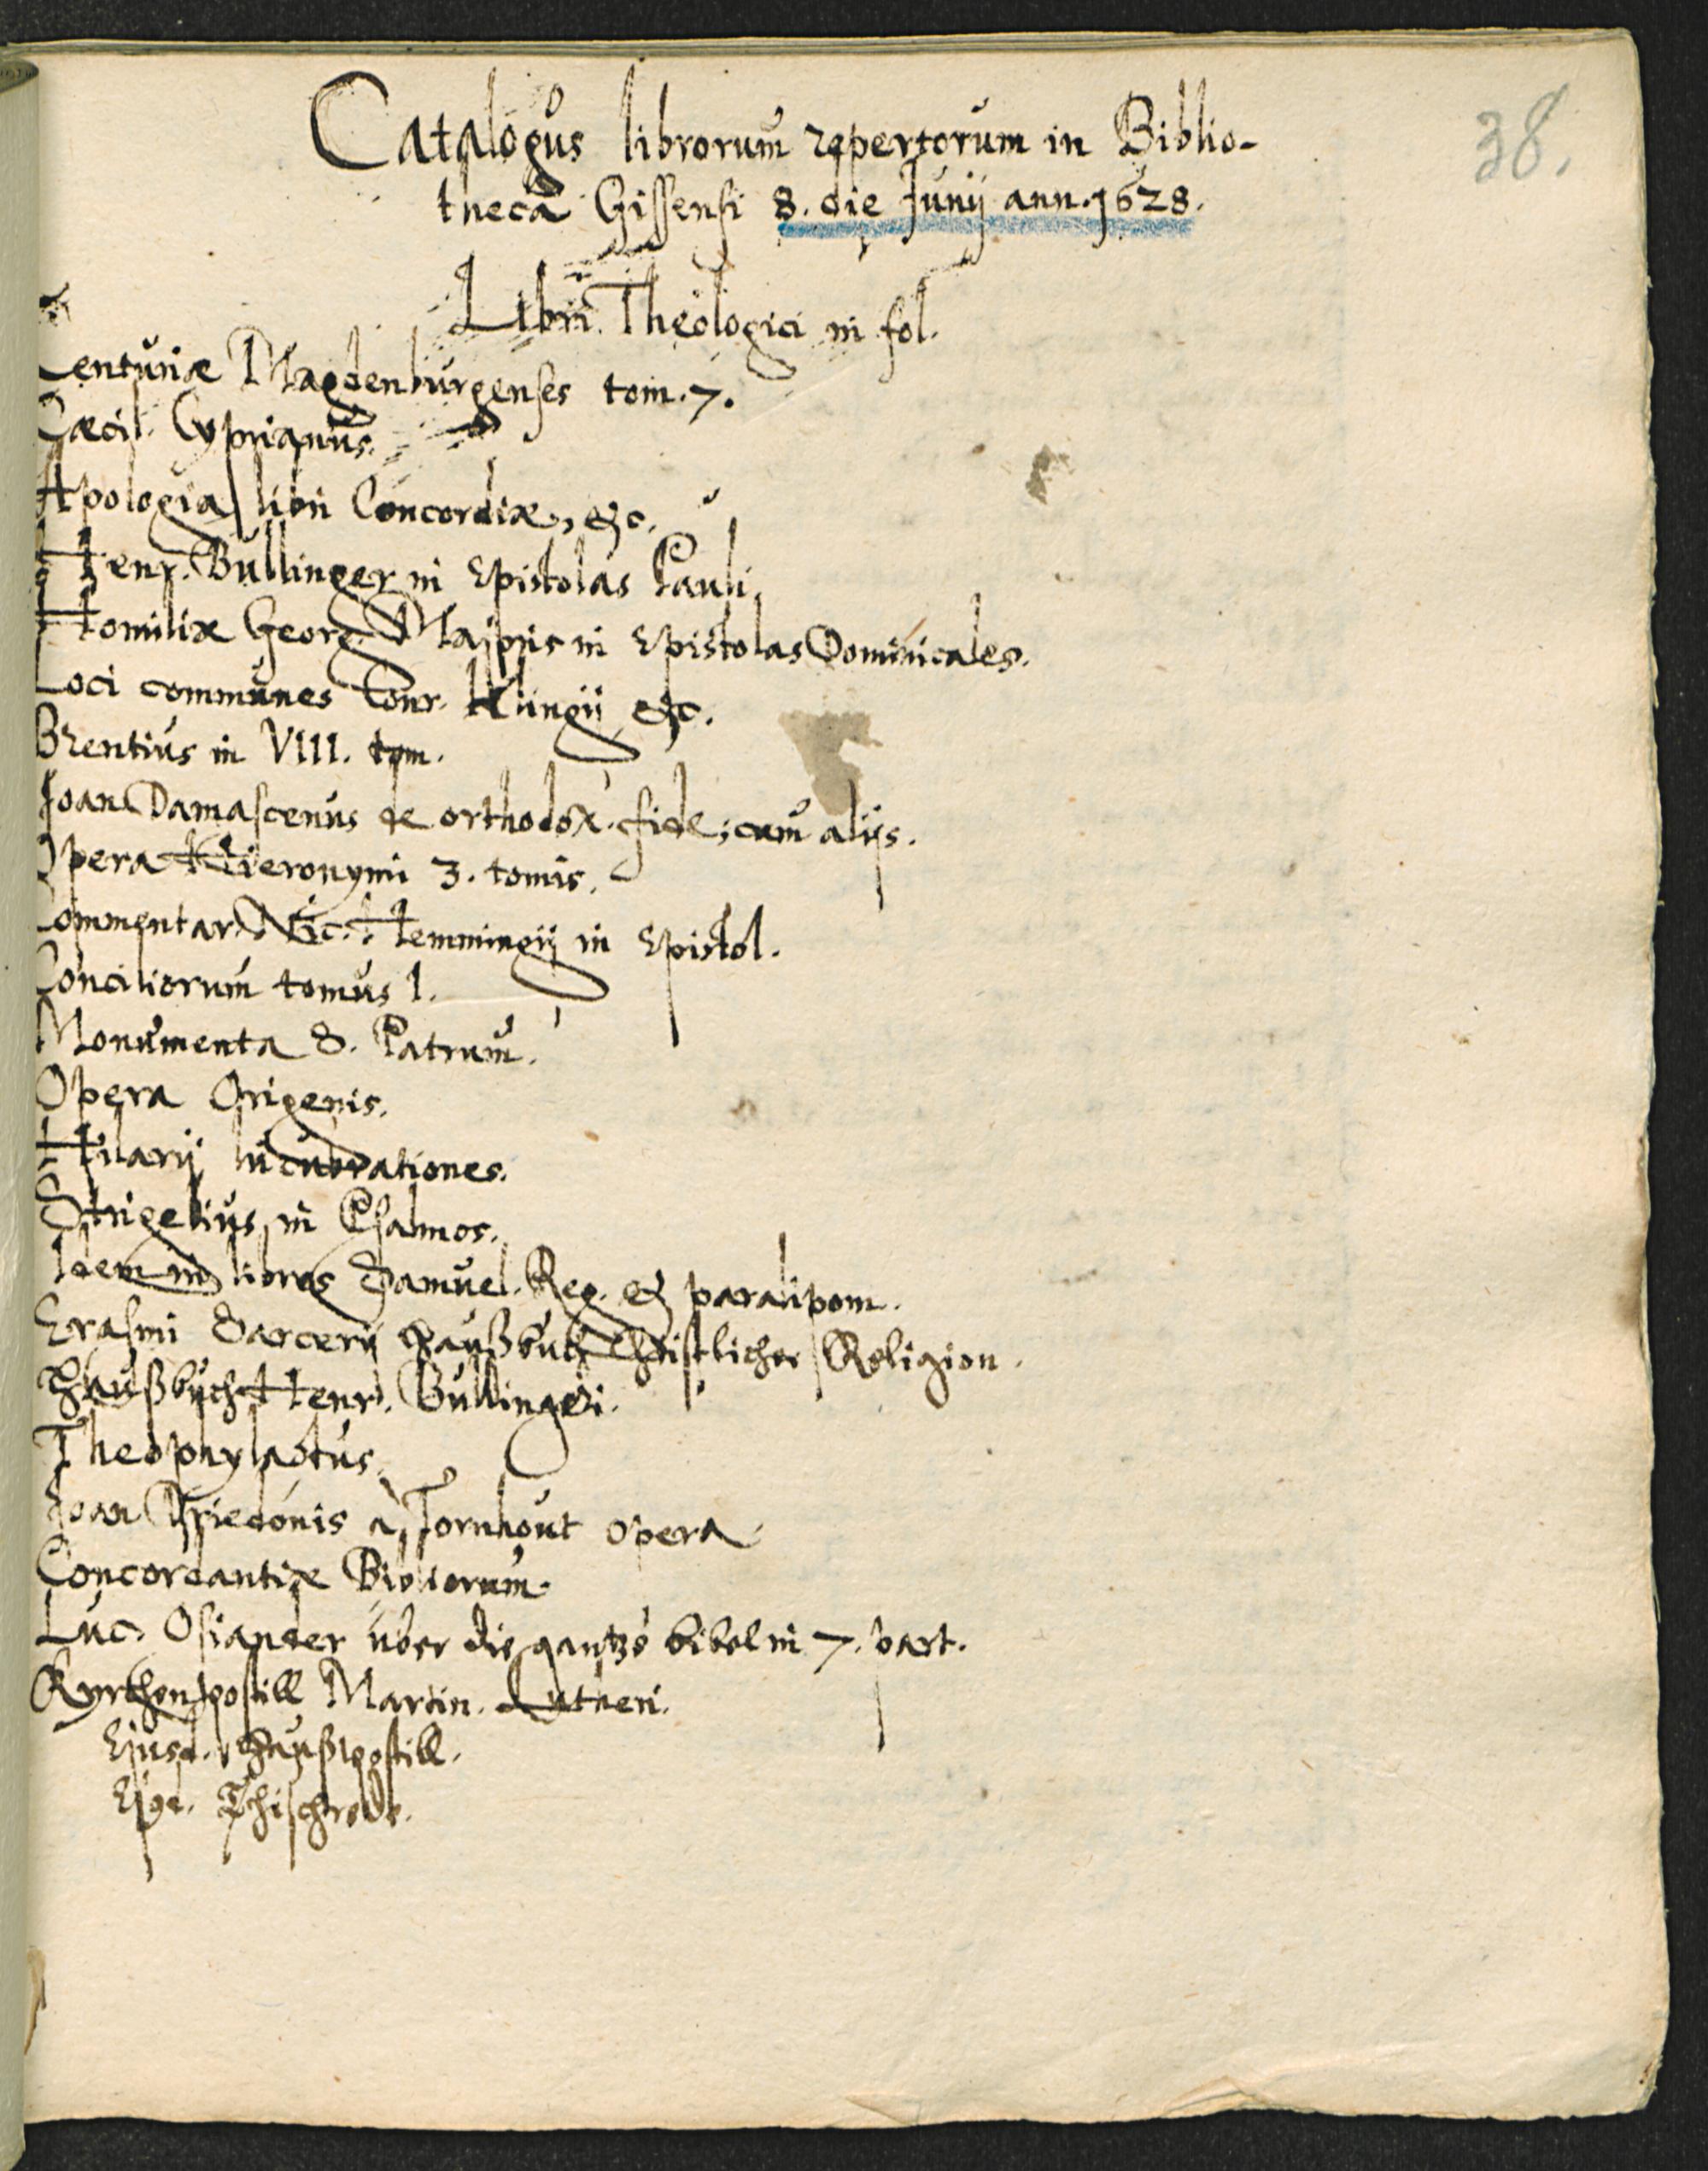 38.
Catalogus librorum repertorum in Biblio-
theca Gissensi 8. die Junij ann. 1628.
Libri Theologici in fol.
Centuriæ Magdenburgenses tom. 7.
Cæcil. Cyprianus.
Apologia libri Concordiæ, &c.
Henr. Bullinger in Epistolas Pauli.
Homiliæ Georg. Majoris in Epistolas Dominicales.
Loci communes Conr. Klingii &c.
Brentius in VIII. tom.
Joan. Damascenus de orthodox. fide; cum alijs.
Opera Hieronymi 3. tomis.
Commentar. Nic. Hemmingij in Epistol.
Conciliorum tomus 1.
Monumenta S. Patrum.
Opera Origenis.
Hilarij lucubrationes.
Strigelius in Psalmos.
Idem in libros Samuel. Reg. & paralipom.
Erasmi Sarcerij Haußbuch Christlicher Religion.
Haußbuch Henr. Bullingeri.
Theophylactus.
Joan Driedonis à Tornhout opera
Concordantiæ Bibliorum.
Luc. Osiander über die gantze bibel in 7. part.
Kyrchenpostill Martin. Lutheri.
Ejusd. Haußpostill.
Ejsd. Thischrede.